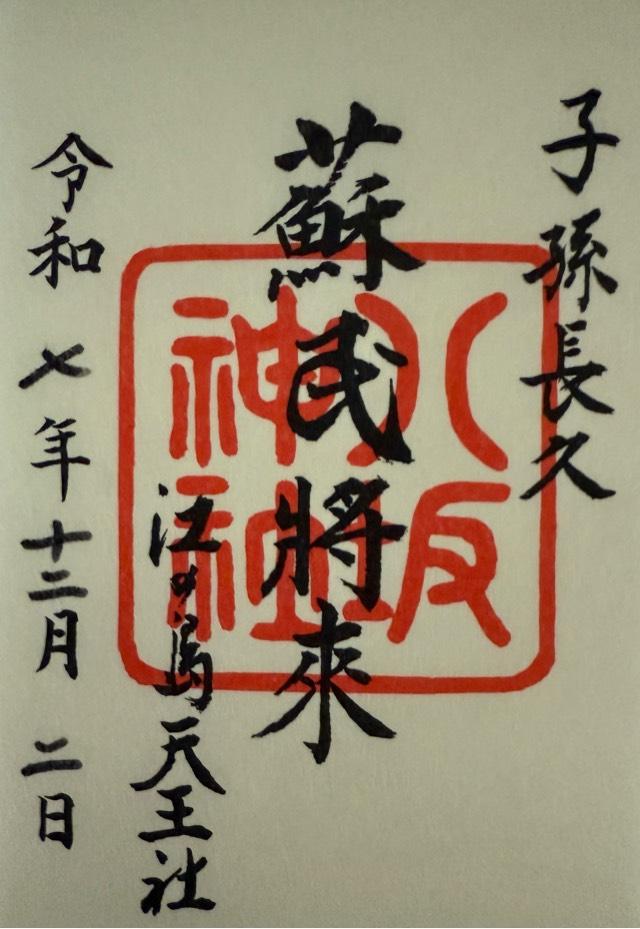 子孫長久
蘇民將來
八坂
神社
江の島天王社
令和 七年十二月 二日